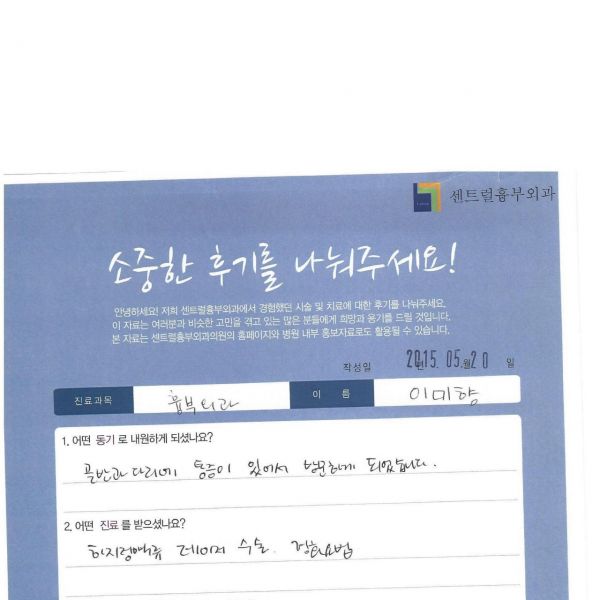 센트럴흉부외과
소중한 후기를 나눠주세요!
안녕하세요! 저희 센트럴흉부외과에서 경험했던 시술 및 치료에 대한 후기를 나눠주세요.
이 자료는 여러분과 비슷한 고민을 겪고 있는 많은 분들에게 희망과 용기를 드릴 것입니다.
본 자료는 센트럴흉부외과의원의 홈페이지와 병원 내부 홍보자료로도 활용될 수 있습니다.
작성일 2015. 05. 월 20 일
진료과목 흉부외과 이 름 이미향
1. 어떤 동기로 내원하게 되셨나요?
골반과 다리에 통증이 있어서 방문하게 되었습니다.
2. 어떤 진료를 받으셨나요?
하지정맥류 레이저 수술. 경화요법